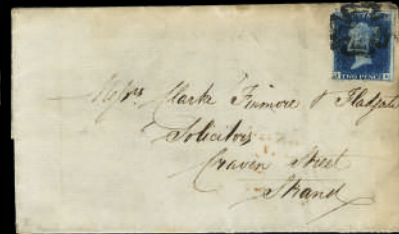 TWO PENCE
Messrs Clarke Finmore & Fladgate
Solicitors
Craven Street
Strand